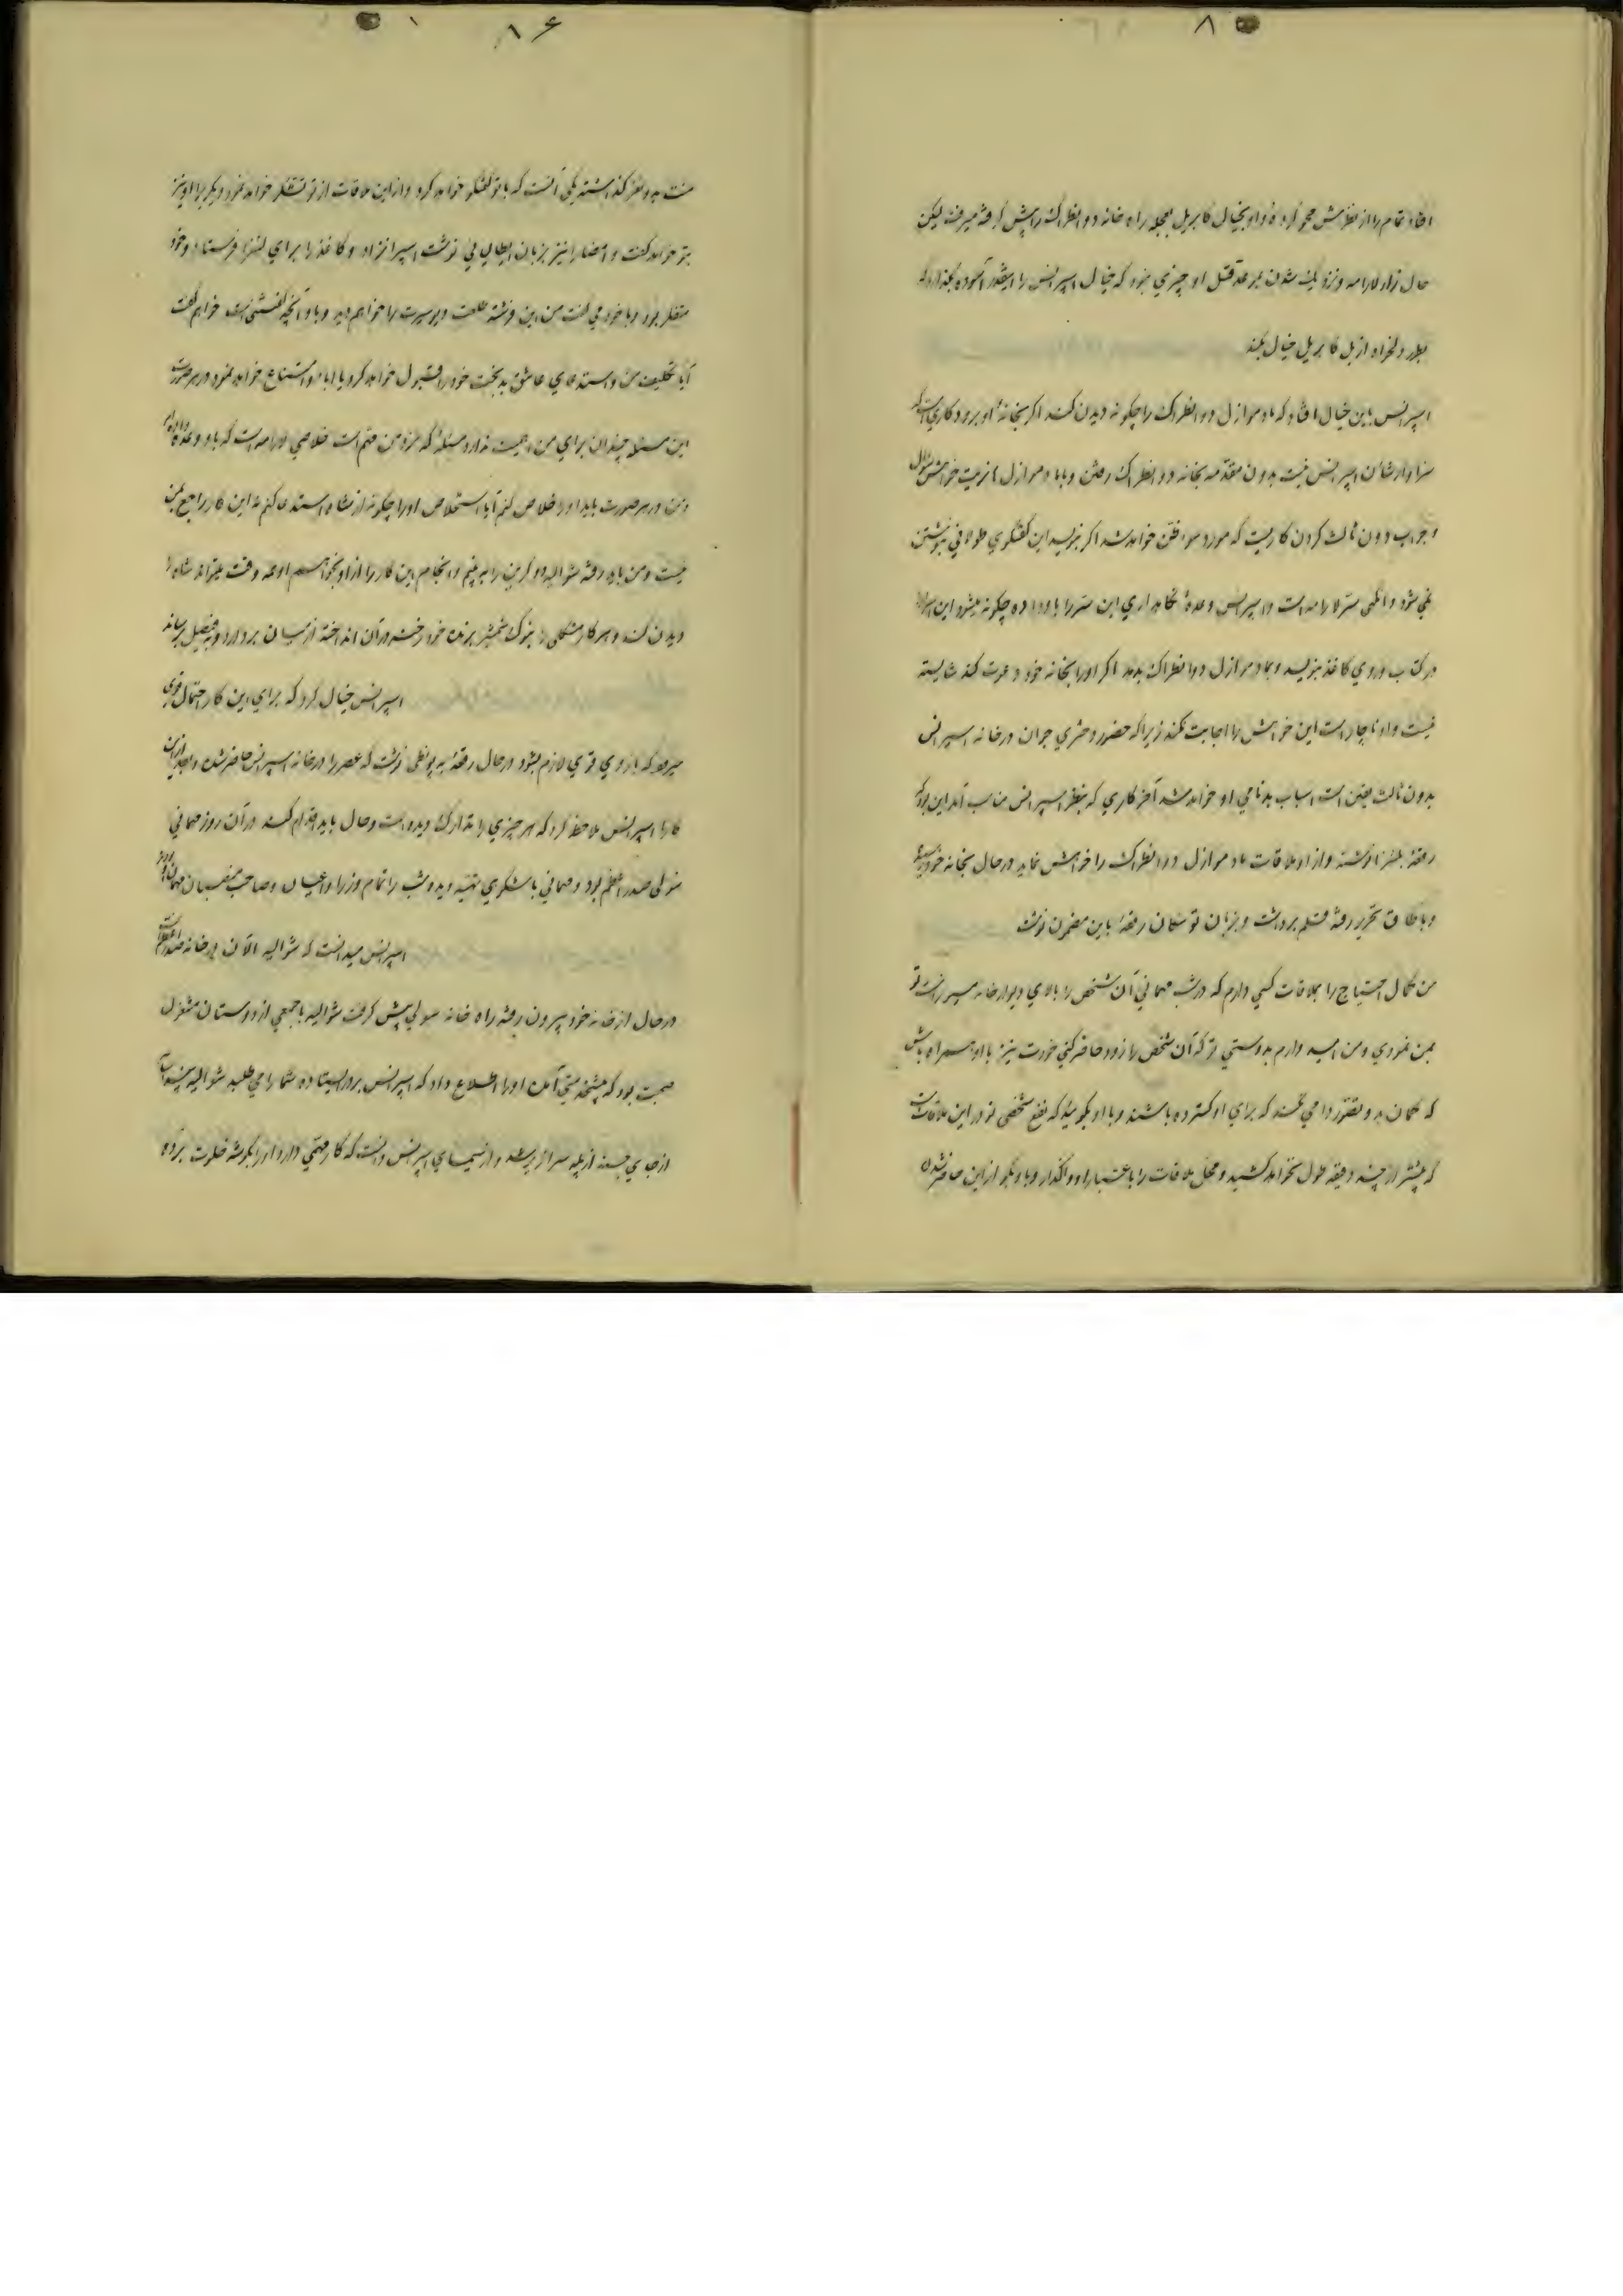 ۸
افتاد تمام را از نظرش محو کرده و او بخیال کابریل بعجله راه خانه دو انطراک را پیش گرفته میرفت لیکن
حال زار لارامه و نزدیک شدن موعد قتل او چیزی نبود که خیال اسپرانس را اینقدر آسوده بگذارد که
بطور دلخواه از بل کابریل خیال بکند
اسپرانس باین خیال افتاد که مادموازل دو انطراک را چگونه دیدن کند اگر بخانه او برود کاری است که
سزاوار شأن اسپرانس نیست بدون مقدمه بخانه دو انطراک رفتن و با مادموازل خواهش سؤال
و جواب بدون ثالث کردن کاریست که مورد سوء ظن خواهد شد اگر بنویسد این گفتگوی طولانی بنوشتن
نمی شود وانگهی سر لارامه است و اسپرانس وعده نگاهداری این سر را باو داده چگونه میشود این اسرار
در کتاب و روی کاغذ بنویسد و بمادموازل دو انطراک بدهد اگر او را بخانه خود دعوت کند شایسته
نیست و او ناچار است این خواهش را اجابت نکند زیرا که حضور دختری جوان در خانه اسپرانس
بدون ثالث یقین است اسباب بدنامی او خواهد شد آخر کاری که بنظر اسپرانس مناسب آمد این بود که
رقعه بلئنرا نوشته و از او ملاقات مادموازل دو انطراک را خواهش نماید در حال بخانه خود رسید
و باطاق تحریر رفته قلم برداشت و بزبان توسکان رقعه باین مضمون نوشت
من کمال احتیاج را بملاقات کسی دارم که در شب مهمانی آن شخص را بالای دیوار خانه تو
بمن نمودی و من امید دارم بدوستی تو که آن شخص را زود حاضر کنی خودت نیز با او همراه باش
که گمان بد و تصور دامی نکند که برای او گسترده باشند و باو بگوئید که نفع شخصی تو در این ملاقات است
که بیشتر از چند دقیقه طول نخواهد کشید و محل ملاقات را باختیار او واگذار و باو بگو از این حاضر شدن
۸۶
منت بر دو نفر گذاشته یکی آنست که با تو گفتگو خواهد کرد و از این ملاقات از تو تشکر خواهد نمود دیگر او نیز
بتو خواهد گفت و امضا را نیز بزبان ایطالیائی نوشت اسپرانزا و کاغذ را برای لئنرا فرستاد و خود
متفکر بود و با خود می گفت من این فرشته طلعت و دیو سیرت را خواهم دید و باو آنچه گفتنی است خواهم گفت
آیا تکلیف من و استدعای عاشق بدبخت خود را قبول خواهد کرد یا ابا و امتناع خواهد نمود در هر صورت
این مسئله چندان برای من اهمیت ندارد مسئله که نزد من مهم است خلاصی لارامه است که باو وعده داده ام
و من در هر صورت باید او را خلاص کنم آیا استخلاص او را چگونه از شاه استدعا کنم نه این کار راجع بمن
نیست و من باید رفته شوالیه دو کریون را به بینم و انجام این کار را از او بخواهم او همه وقت میتواند شاه را
دیدن کند و هر کار مشکلی را بنوک شمشیر برنده خود رخنه در آن انداخته از میان بردارد و بفیصل برساند
اسپرانس خیال کرد که برای این کار احتمال قوی
میرود که بازوی قوی لازم بشود در حال رقعه به پونطی نوشت که عصر را در خانه اسپرانس حاضر شده و بعد از این
کارها اسپرانس ملاحظه کرد که هر چیزی را تدارک دیده است و حال باید اقدام کند در آن روز مهمانی
سولی صدر اعظم بود و مهمانی باشکوهی تهیه دیده و شب را تمام وزرا و اعیان و صاحب منصبان مهمان او بودند
اسپرانس میدانست که شوالیه الآن در خانه صدر اعظم است
در حال از خانه خود بیرون رفته راه خانه سولی پیش گرفت شوالیه با جمعی از دوستان مشغول
صحبت بود که پیشخدمتی آمده او را اطلاع داد که اسپرانس بدر ایستاده شما را می طلبد شوالیه
از جای جسته از پله سرازیر شد و از سیمای اسپرانس دانست که کار مهمی دارد او را بگوشه خلوت برده